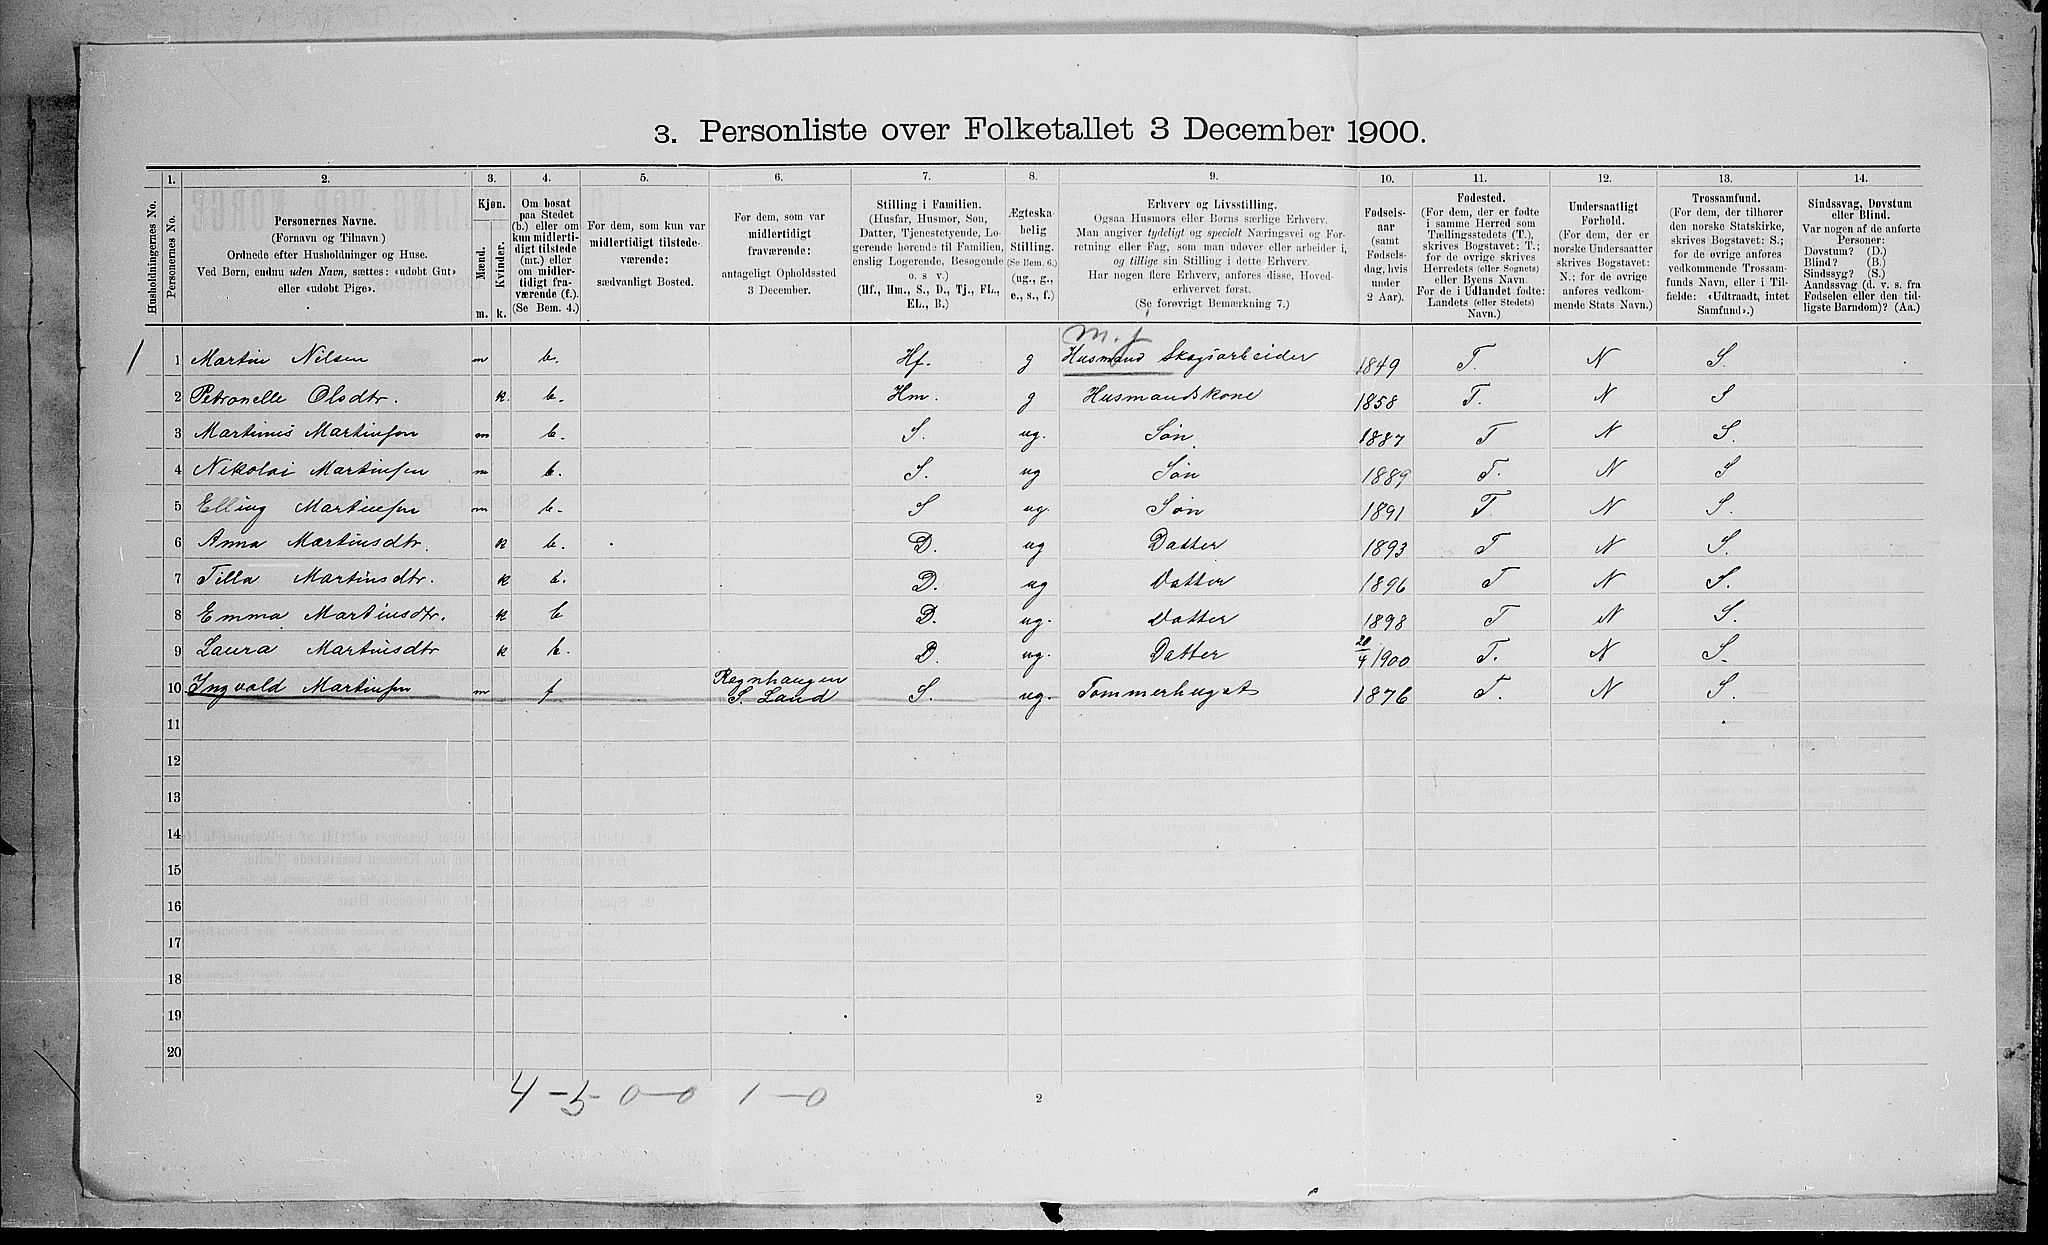 3. Personliste over Folketallet 3 December 1900.
1. 2. 3. 4. 5. 6. 7. 8. 9. 10. 11. 12. 13. 14.
Husholdningernes No.
Personernes No.
Personernes Navne.
(Fornavn og Tilnavn)
Ordnede efter Husholdninger og Huse.
Ved Børn, endnu uden Navn, sættes: «udøbt Gut»
eller «udøbt Pige».
Kjøn.
Mænd.
Kvinder.
m. k.
Om bosat
paa Stedet
(b.) eller om
kun midlerti-
digt tilstede
(mt.) eller
om midler-
tidigt fra-
værende (f.).
(Se Bem. 4.)
For dem, som kun var
midlertidigt tilstede-
værende:
sædvanligt Bosted.
For dem, som var
midlertidigt
fraværende:
antageligt Opholdssted
3 December.
Stilling i Familien.
(Husfar, Husmor, Søn,
Datter, Tjenestetyende, Lo-
gerende hørende til Familien,
enslig Logerende, Besøgende
o. s. v.)
(Hf., Hm., S., D., Tj., FL.,
EL., B.)
Ægteska-
belig
Stilling.
(Se Bem. 6.)
(ug., g.,
e., s., f.)
Erhverv og Livsstilling.
Ogsaa Husmors eller Børns særlige Erhverv.
Man angiver tydeligt og specielt Næringsvei og For-
retning eller Fag, som man udøver eller arbeider i,
og tillige sin Stilling i dette Erhverv.
Har nogen flere Erhverv, anføres disse, Hoved-
erhvervet først.
(Se forøvrigt Bemærkning 7.)
Fødsels-
aar
(samt
Fødsels-
dag, hvis
under
2 Aar).
Fødested.
(For dem, der er fødte
i samme Herred som
Tællingsstedets (T.),
skrives Bogstavet: T.;
for de øvrige skrives
Herredets (eller Sognets)
eller Byens Navn.
For de i Udlandet fødte:
Landets (eller Stedets)
Navn.)
Undersaatligt
Forhold.
(For dem, der er
norske Undersaatter
skrives Bogstavet:
N.; for de øvrige
anføres vedkom-
mende Stats Navn.)
Trossamfund.
(For dem, der tilhører
den norske Statskirke,
skrives Bogstavet: S.;
for de øvrige anføres
vedkommende Trossam-
funds Navn, eller i Til-
fælde: «Udtraadt, intet
Samfund».)
Sindssvag, Døvstum
eller Blind.
Var nogen af de anførte
Personer:
Døvstum? (D.)
Blind? (B.)
Sindssyg? (S.)
Aandssvag (d. v. s. fra
Fødselen eller den tid-
ligste Barndom)? (Aa.)
m. f
1 1 Martin Nilsen m b. Hf. g Husmand Skogsarbeider 1849 T. N S.
2 Petronelle Olsdtr. k. b. Hm. g Husmandskone 1858 T. N S
3 Martinus Martinsen m b. S. ug. Søn 1887 T N S.
4 Nikolai Martinsen m b. S. ug Søn 1889 T. N S
5 Elling Martinsen m b. S ug. Søn 1891 T. N S.
6 Anna Martinsdtr. k b. D. ug Datter 1893 T N S.
7 Tilla Martinsdtr. k b. D. ug Datter 1896 T N S.
8 Emma Martinsdtr. k b D. ug. Datter 1898 T N S.
9 Laura Martinsdtr k b. D. ug. Datter 20/4 1900 T. N S.
10 Ingvald Martinsen m f Rognhaugen S. Land S. ug. Tømmerhugst 1876 T. N S.
11
12
13
14
15
16
17
18
19
20
4 - 5 0 - 0 1 - 0
2